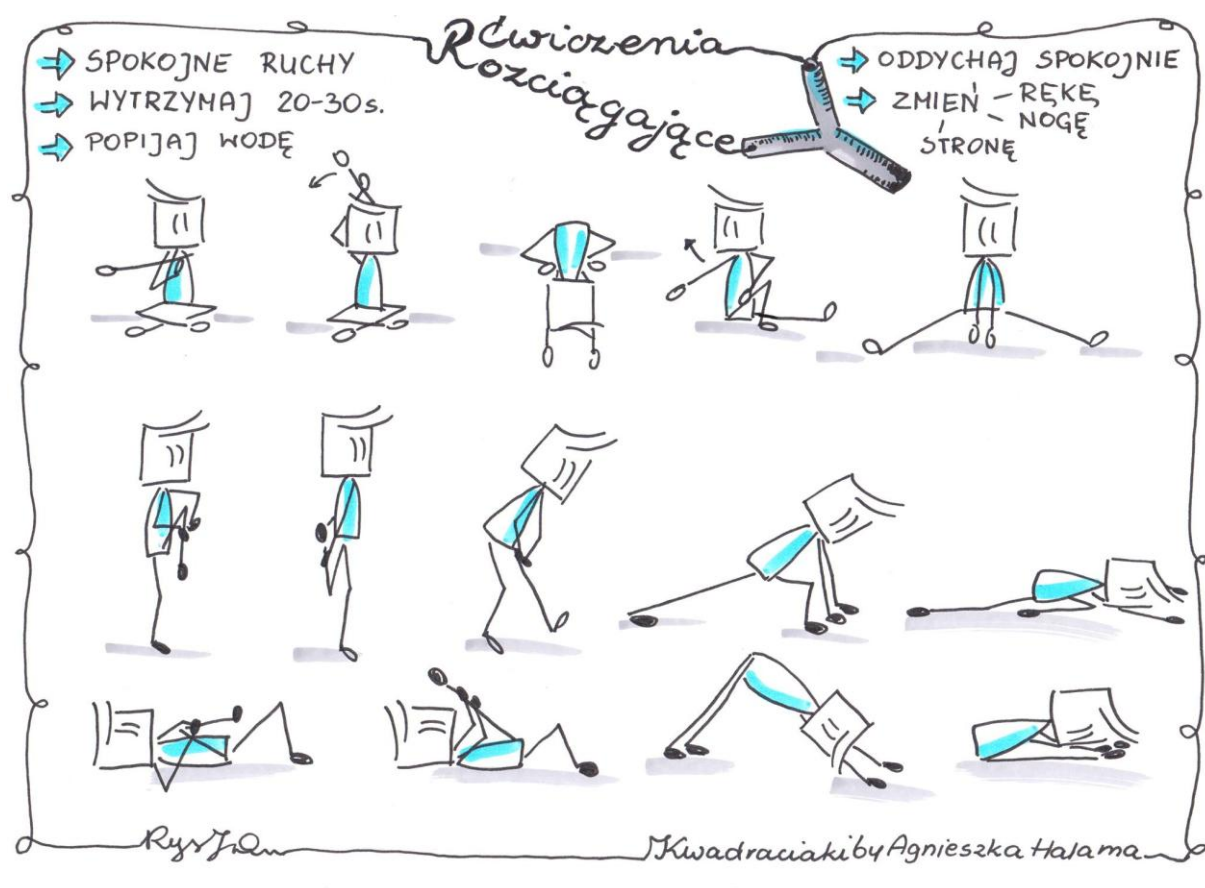 Ćwiczenia
Rozciągające
SPOKOJNE RUCHY
WYTRZYMAJ 20-30s.
POPIJAJ WODĘ
ODDYCHAJ SPOKOJNIE
ZMIEŃ - RĘKĘ
- NOGĘ
STRONĘ
Kwadraciaki by Agnieszka Halama